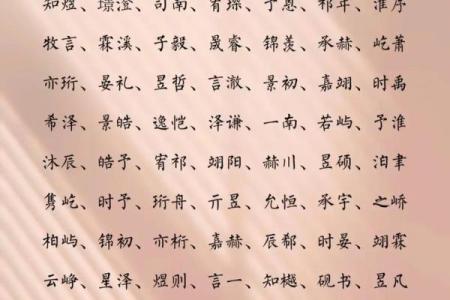 知煜、璟澄、司南、宥琛、予恩、祁年、淮序
牧言、霖溪、子毅、晟睿、锦羡、承赫、屹萧
亦珩、晏礼、昱哲、言澈、景初、嘉翊、时禹
希泽、景皓、逸恺、泽谦、一南、若屿、予淮
沐辰、皓予、宥祁、翊阳、赫川、昱硕、洎聿
隽屹、时予、珩舟、亓昱、允恒、承宇、之峤
柏屿、锦初、亦桁、嘉赫、辰郗、时晏、翊霖
云峥、星泽、煜则、言一、知樾、砚书、昱凡